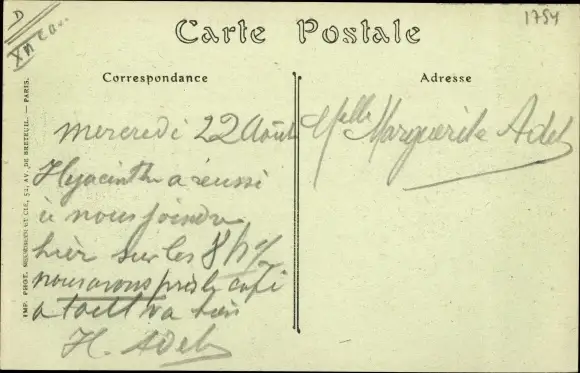 D
XII
1754
Carte Postale
Correspondance
Adresse
IMP. PHOT. NEURDEIN ET CIE, 52, AV. DE BRETEUIL. — PARIS.
Mercredi 22 Août
Hyacinthe a réussi
à nous joindre
hier sur les 8h
nous avons pris le café
va bien
H. Adel
Melle Marguerite Adel